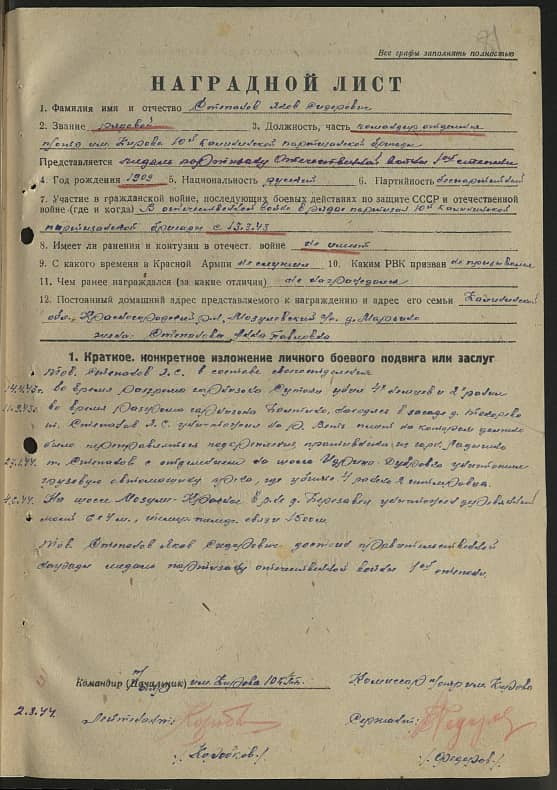 Все графы заполнять полностью
НАГРАДНОЙ ЛИСТ
1. Фамилия имя и отчество Степанов Яков Сидорович
2. Звание рядовой 3. Должность, часть командир отделения
отряд им. Кирова 10й Калининской партизанской бригады
Представляется медаль партизану Отечественной войны 1ой степени
4. Год рождения 1909 5. Национальность русский 6. Партийность беспартийный
7. Участие в гражданской войне, последующих боевых действиях по защите СССР и отечественной
войне (где и когда) В отечественной войне в рядах партизан 10й Калининской
партизанской бригады с 13.3.43
8. Имеет ли ранения и контузии в отечест. войне не имеет
9. С какого времени в Красной Армии не служил 10. Каким РВК призван не призывался
11. Чем ранее награждался (за какие отличия) не награждался
12. Постоянный домашний адрес представляемого к награждению и адрес его семьи Калининская
обл., Красногородский р-н, Мозулевский с/с д.
жена: Степанова Анна Павловна
1. Краткое, конкретное изложение личного боевого подвига или заслуг
Тов. Степанов Я.С. в составе
во время разгрома гарнизона убил 4х немцев и 2 ранил
во время разгрома гарнизона находясь в засаде д.
т. Степанов Я.С. уничтожил на р. плот на котором должно
было переправляться подкрепление противника из гарн.
т. Степанов с отделением на шоссе Дубровка уничтожил
грузовую автомашину где убито 4 ранено 2 гитлеровца.
На шоссе Мозули-Красное в р-не д. Березовка уничтожил деревянный
мост 6×4 м., связи 1500 м.
Тов. Степанов Яков Сидорович достоин правительственной
награды медаль партизану отечественной войны 1ой степени.
Командир (Начальник) им. Кирова 10 КПБ Комиссар отряда им. Кирова
2.3.44. Лейтенант: Сержант:
/Коробков./ /Федоров/